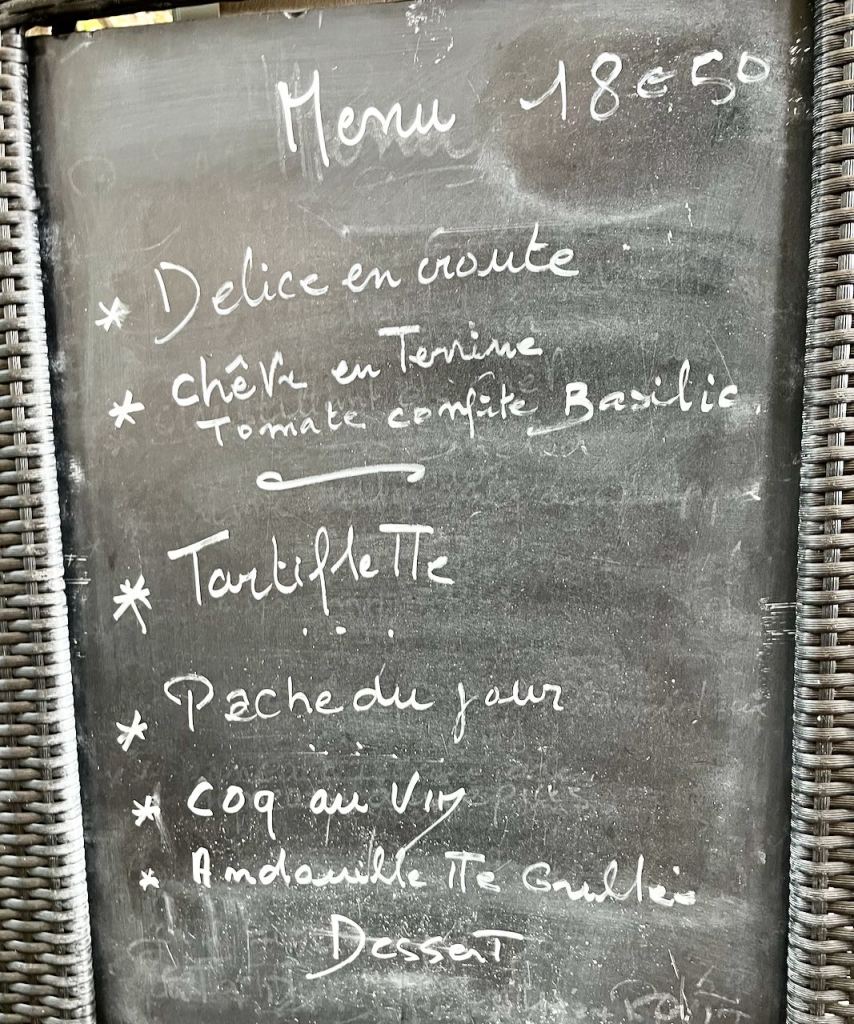 Menu 18€50
* Delice en croute
* Chêvre en Terrine
Tomate confite Basilic
* Tartiflette
* Peche du jour
* Coq au Vin
* Andouillette Grillée
Dessert